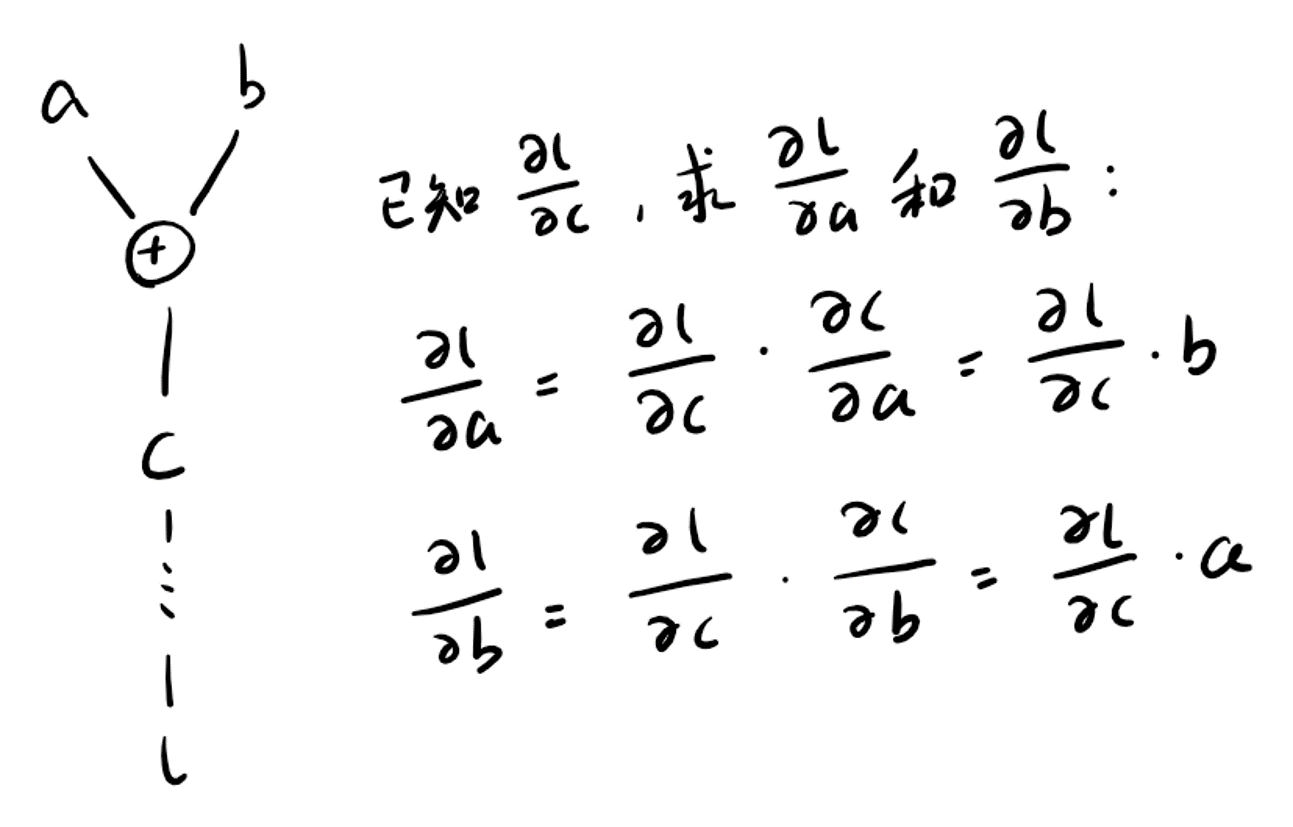 a b
+
c
l
已知 ∂l/∂c , 求 ∂l/∂a 和 ∂l/∂b :
∂l/∂a = ∂l/∂c · ∂c/∂a = ∂l/∂c · b
∂l/∂b = ∂l/∂c · ∂c/∂b = ∂l/∂c · a